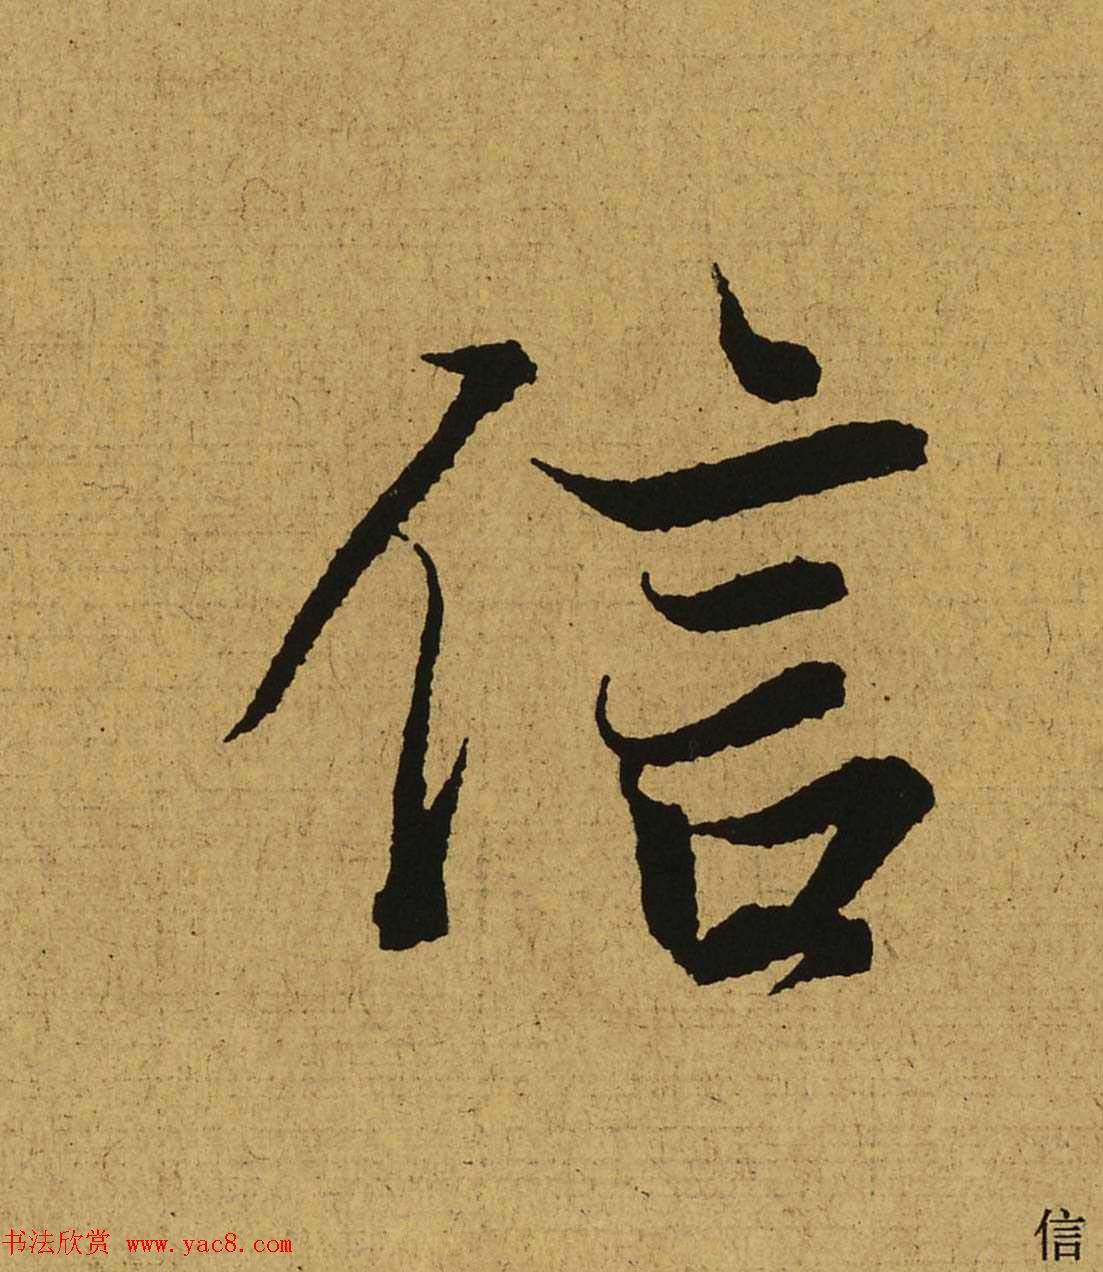 信
书法欣赏 www.yac8.com
信